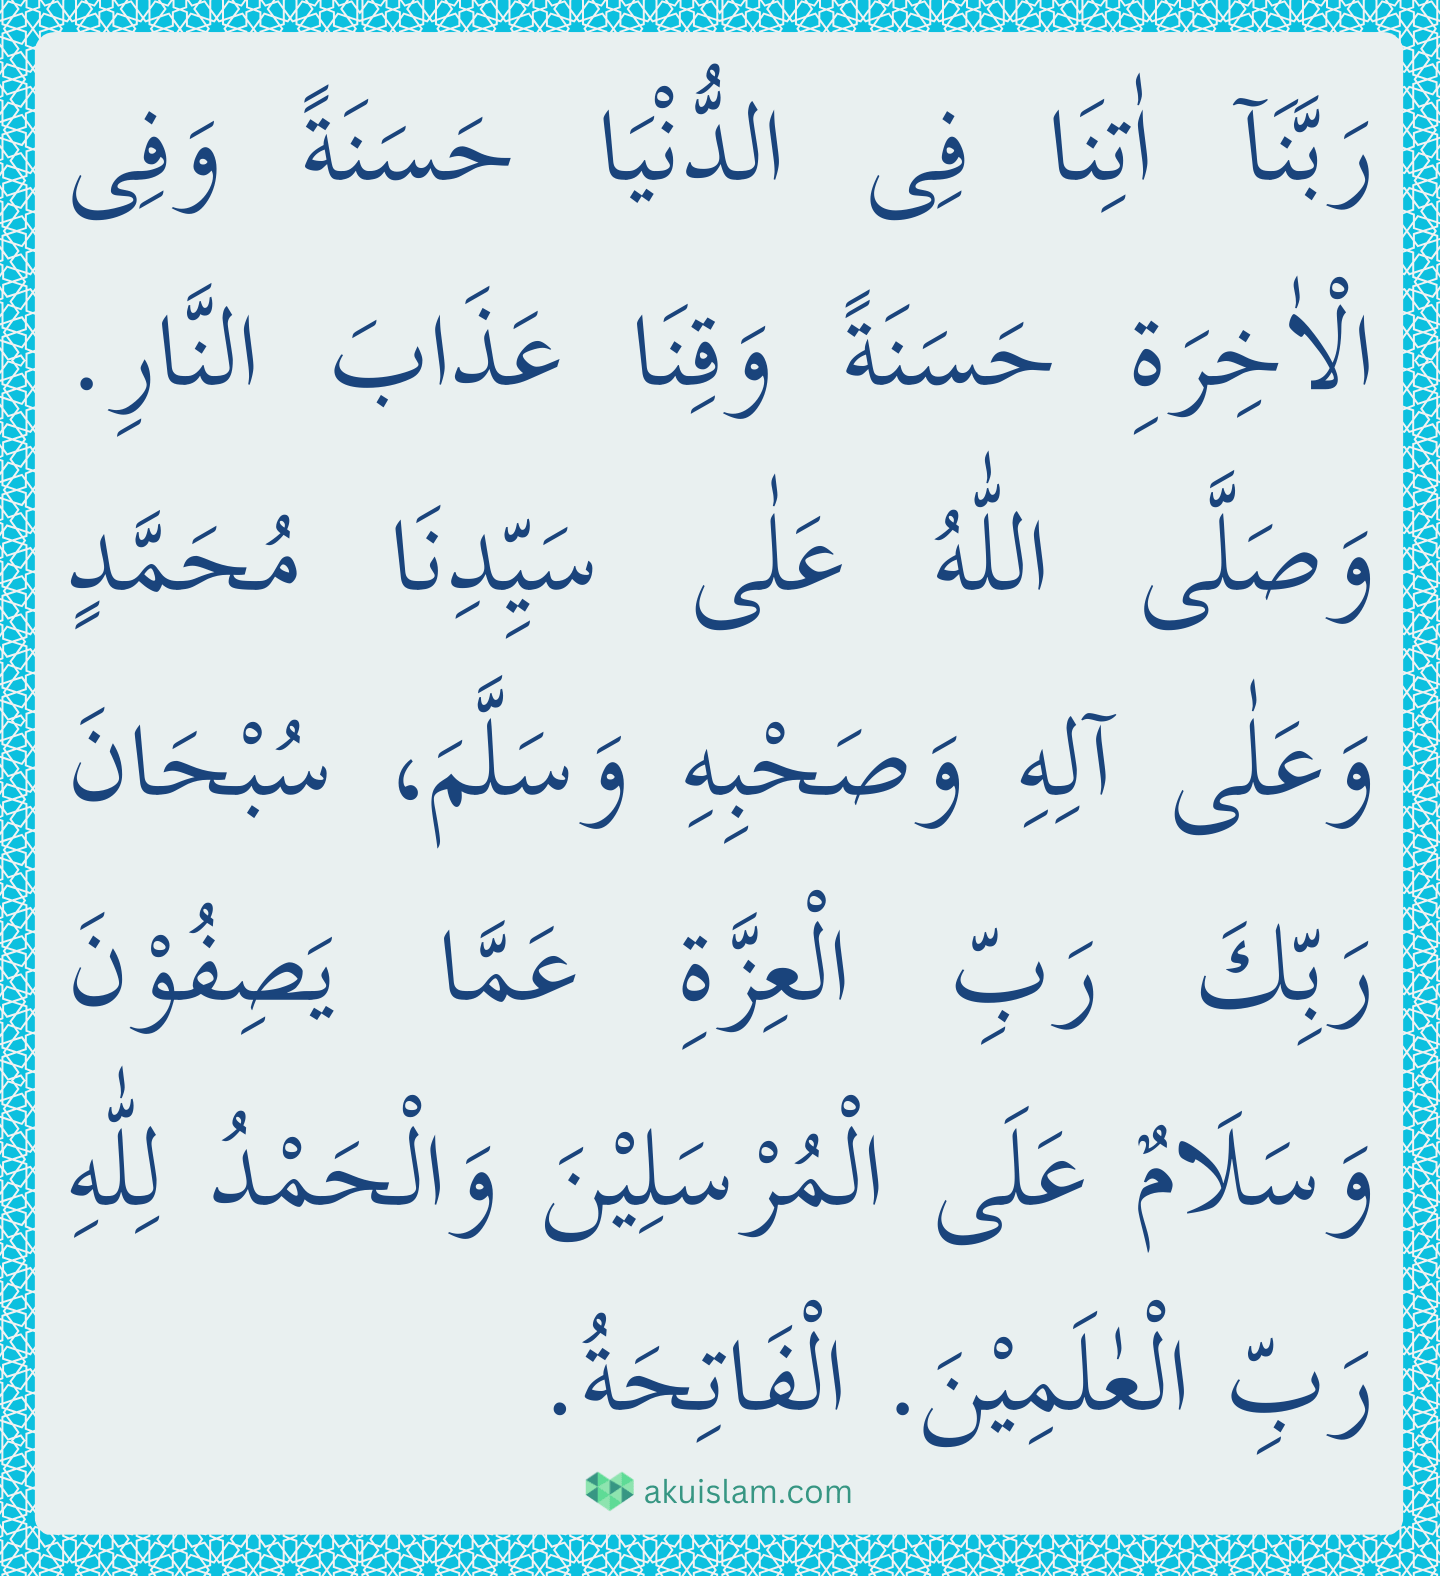 رَبَّنَآ اٰتِنَا فِى الدُّنْيَا حَسَنَةً وَفِى
الْاٰخِرَةِ حَسَنَةً وَقِنَا عَذَابَ النَّارِ.
وَصَلَّى اللّٰهُ عَلٰى سَيِّدِنَا مُحَمَّدٍ
وَعَلٰى آلِهِ وَصَحْبِهِ وَسَلَّمَ، سُبْحَانَ
رَبِّكَ رَبِّ الْعِزَّةِ عَمَّا يَصِفُوْنَ
وَسَلَامٌ عَلَى الْمُرْسَلِيْنَ وَالْحَمْدُ لِلّٰهِ
رَبِّ الْعٰلَمِيْنَ. الْفَاتِحَةُ.
akuislam.com